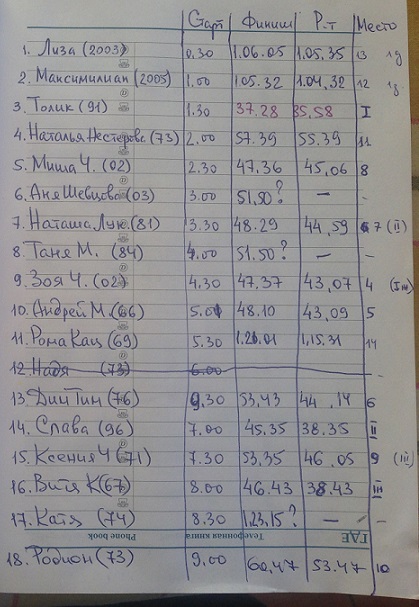 Старт Финиш Р-т Место
1. Лиза (2003) 0.30 1.06.05 1.05.35 13 1д
2. Максимилиан (2005) 1.00 1.05.32 1.04.32 12
3. Толик (91) 1.30 37.28 35.58 I
4. Наталья Нестерова (73) 2.00 57.39 55.39 11
5. Миша Ч. (02) 2.30 47.36 45.06 8
6. Аня Шевцова (03) 3.00 51.50? — -
7. Наташа Лук. (81) 3.30 48.29 44.59 7 (II)
8. Таня М. (84) 4.00 51.50? — -
9. Зоя Ч. (02) 4.30 47.37 43.07 4
10. Андрей М. (66) 5.00 48.10 43.09 5
11. Рома Кац (69) 5.30 1.15.31 14
12. Надя (73) 6.00
13 ДимТим (76) 9.30 53,43 44.14 6
14. Слава (96) 7.00 45.35 38.35 II
15. Ксения Ч (71) 7.30 53.35 46.05 9 (III)
16. Витя К (67) 8.00 46.43 38.43 III
17. Катя (74) 8.30 1.23.15? — -
ГДЕ Телефонная книга Phone book
18. Родион (73) 9.00 60,47 53.47 10